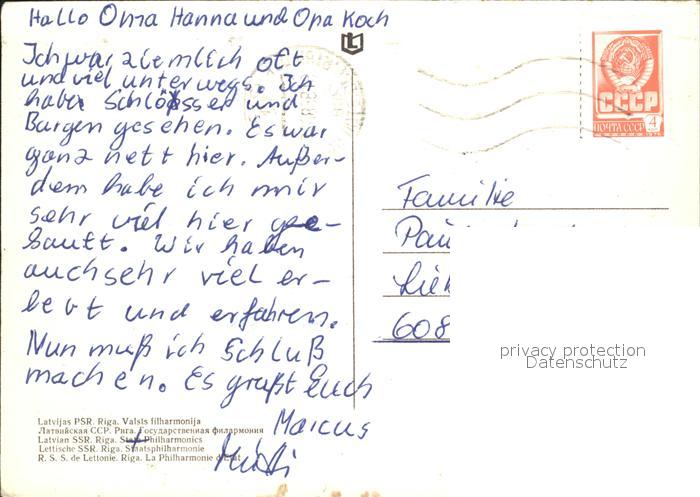 Hallo Oma Hanna und Opa Koch
Ich war ziemlich oft
und viel unterwegs. Ich
habe Schlösser und
Bargen gesehen. Es war
ganz nett hier. Außer-
dem habe ich mir
sehr viel hier ge-
kauft. Wir haben
auch sehr viel er-
lebt und erfahren.
Nun muß ich Schluß
machen. Es grüßt Euch
Marcus
СССР
ПОЧТА СССР 4
Familie
608
privacy protection
Datenschutz
Latvijas PSR. Rīga. Valsts filharmonija
Латвийская ССР. Рига. Государственная филармония
Latvian SSR. Riga. State Philharmonics
Lettische SSR. Riga. Staatsphilharmonie
R. S. S. de Lettonie. Riga. La Philharmonie d'Etat